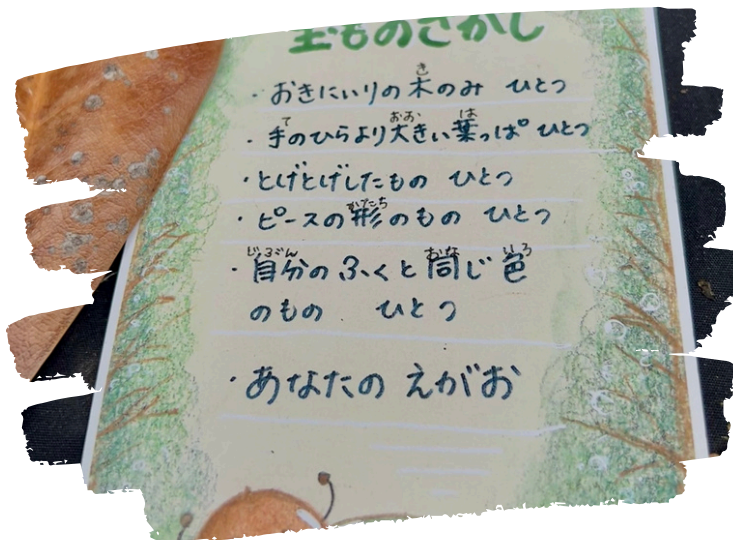 宝ものさがし
・おきにいりの木のみ ひとつ
・手のひらより大きい葉っぱ ひとつ
・とげとげしたもの ひとつ
・ピースの形のもの ひとつ
・自分のふくと同じ色
のもの ひとつ
・あなたの えがお